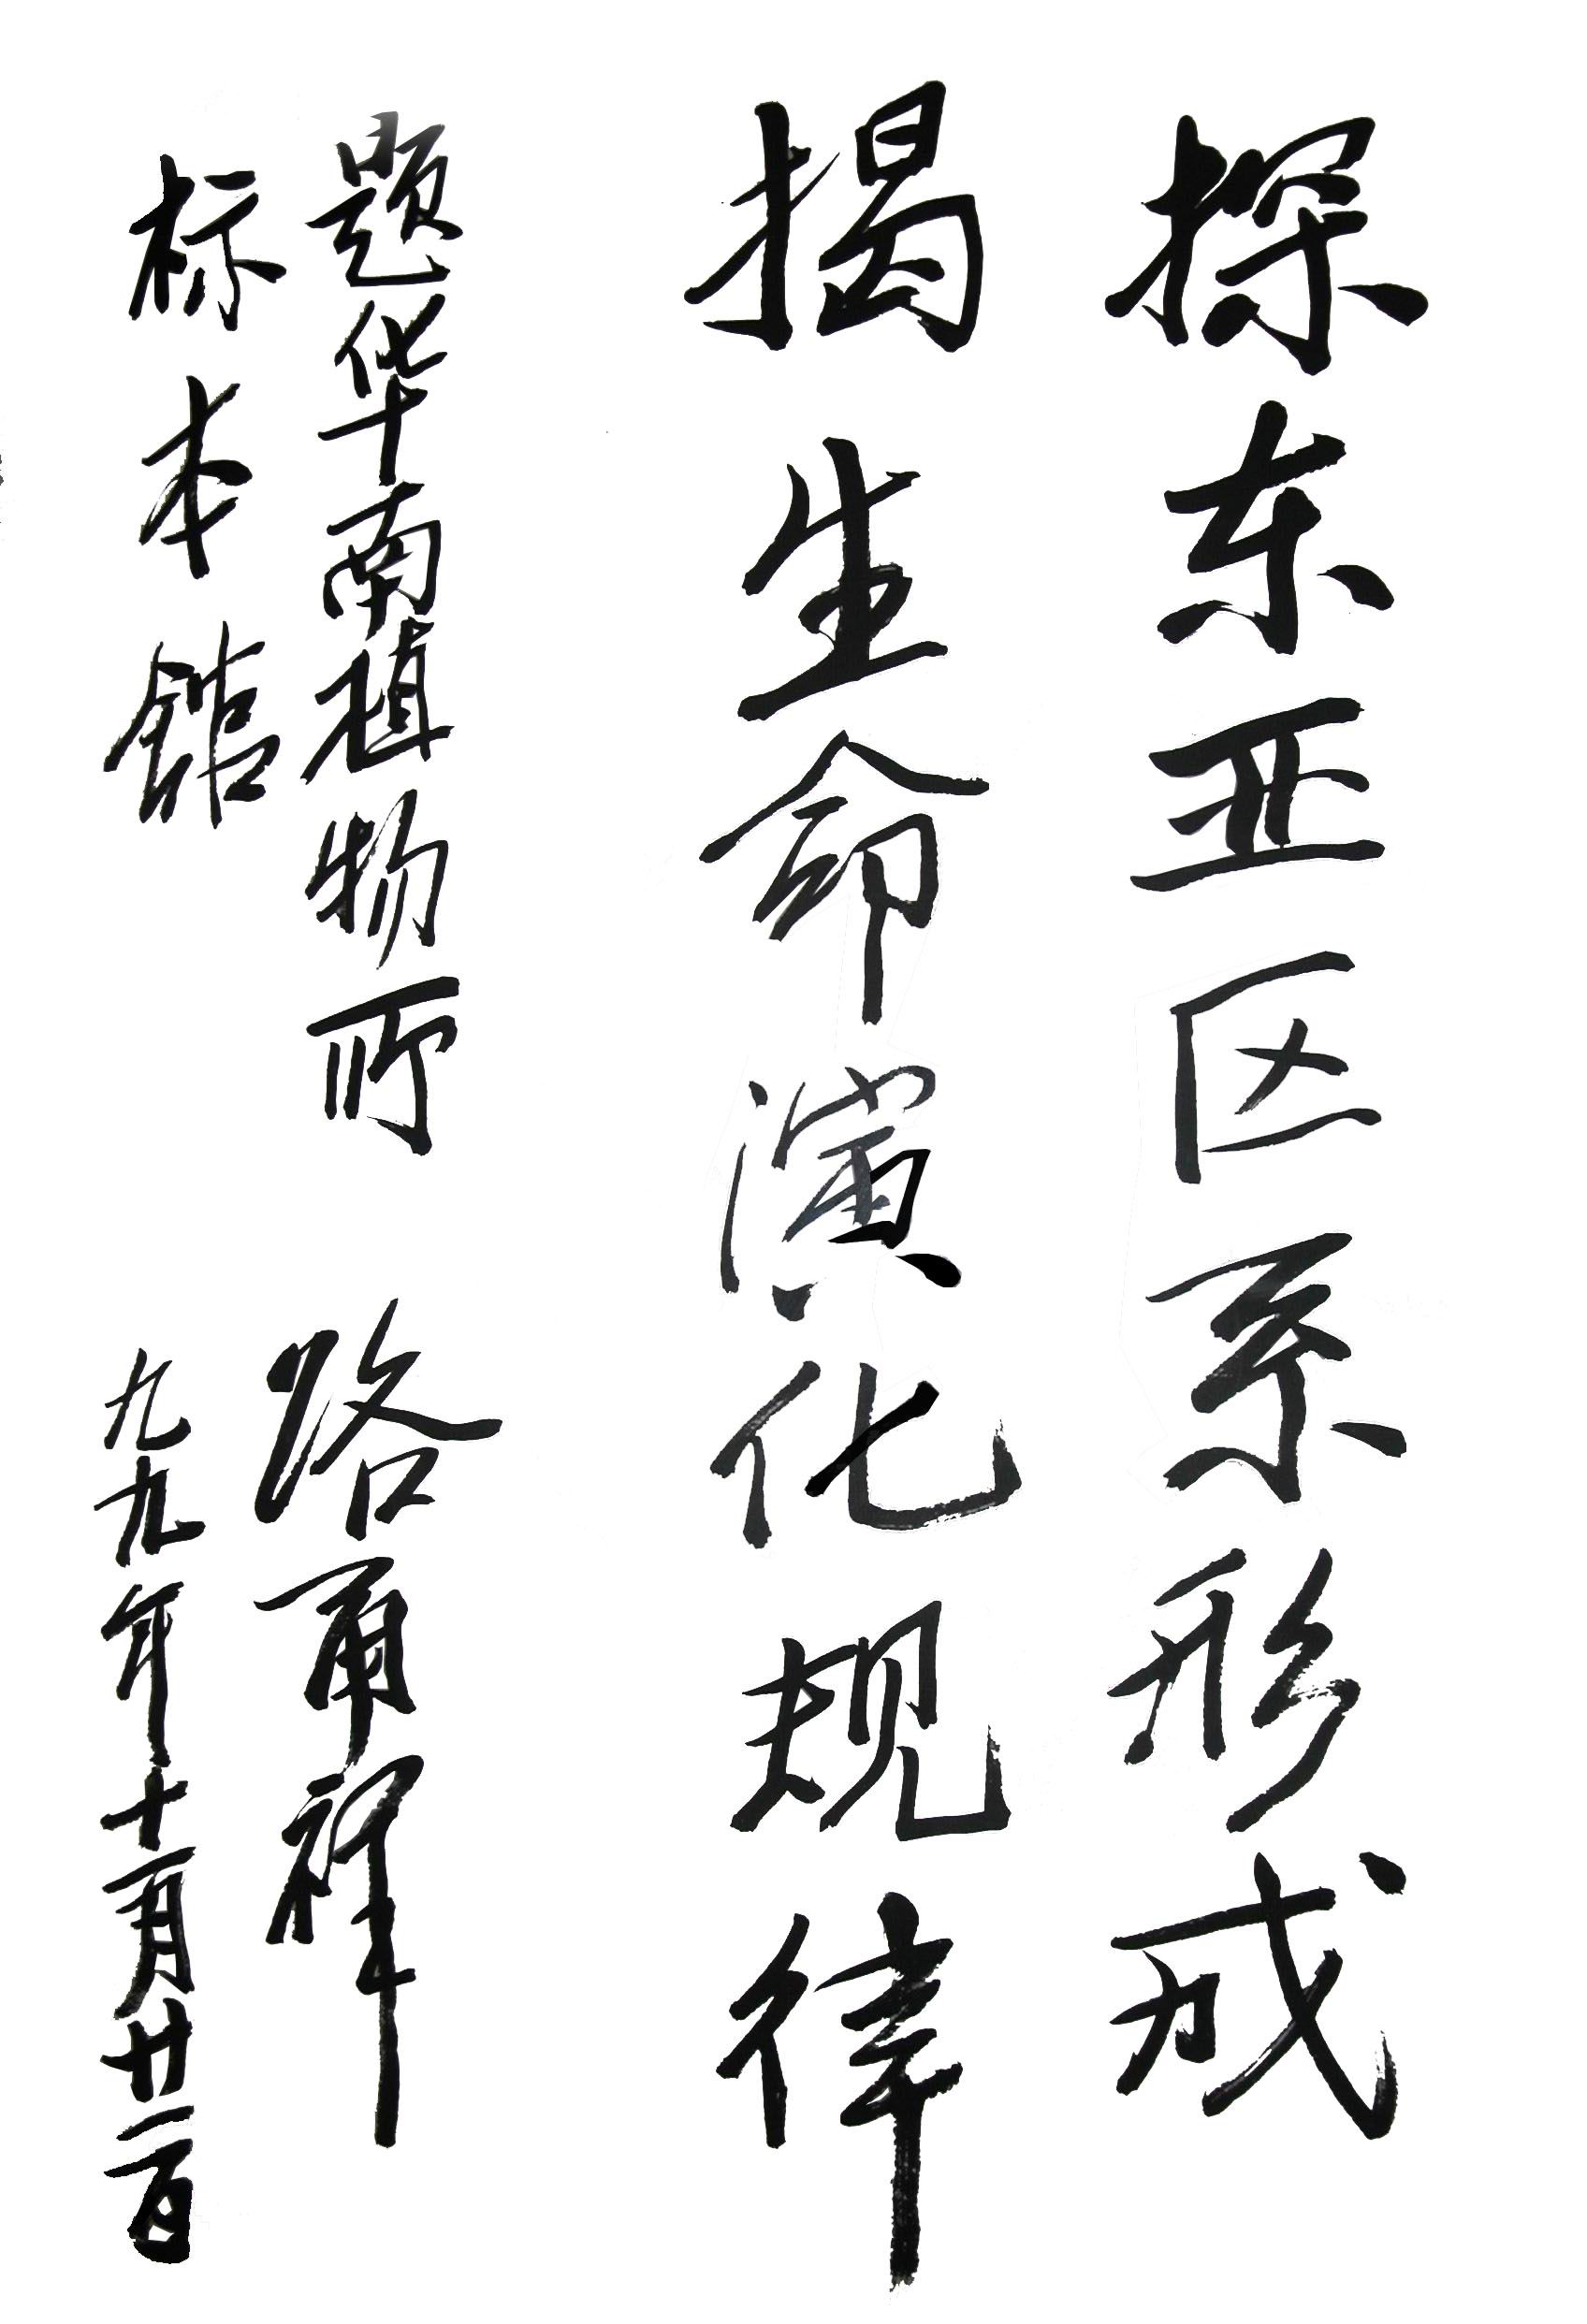 探东亚区系形成
揭生命演化规律
题华南植物所
标本馆
路甬祥
九九年十一月廿二日